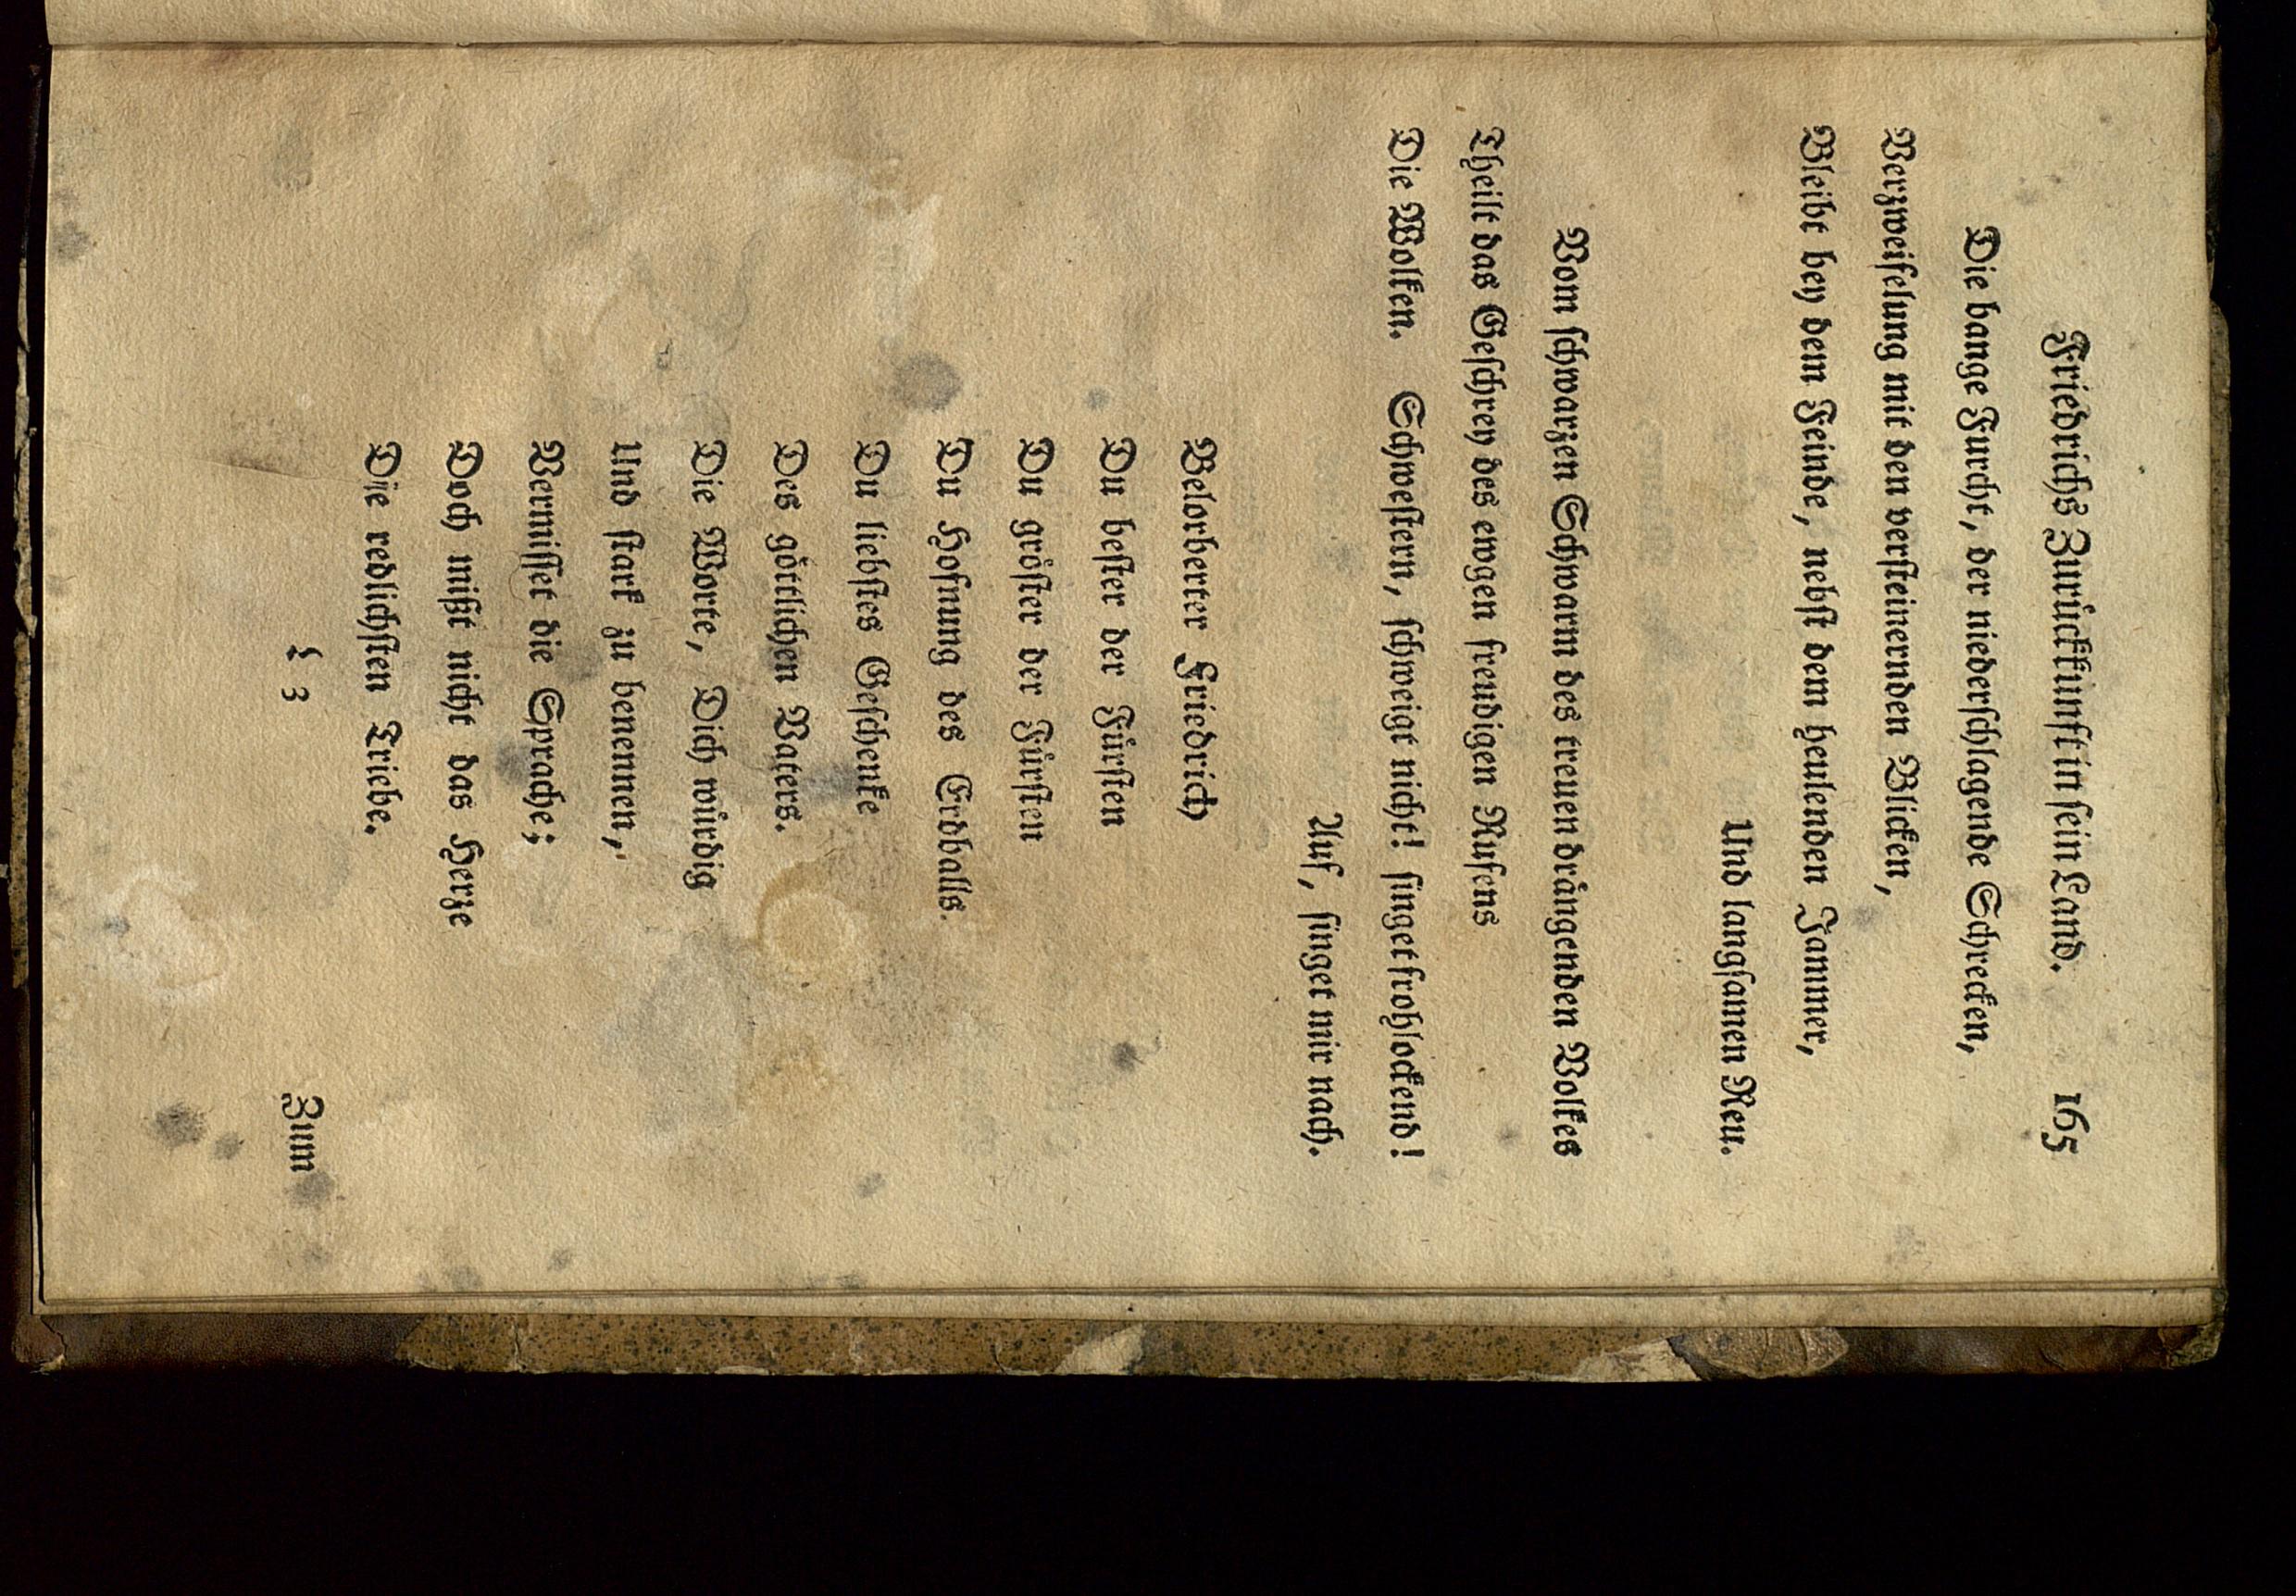 Friedrichs Zurückkunft in sein Land. 165
Die bange Furcht, der niederschlagende Schrecken,
Verzweifelung mit den versteinernden Blicken,
Bleibt bey dem Feinde, nebst dem heulenden Jammer,
Und langsamen Reu.
Vom schwarzen Schwarm des treuen drängenden Volkes
Theilt das Geschrey des ewgen freudigen Rufens
Die Wolken. Schwestern, schweigt nicht! singet frohlockend!
Auf, singet mir nach.
Belorberter Friedrich
Du bester der Fürsten
Du gröster der Fürsten
Du Hofnung des Erdballs.
Du liebstes Geschenke
Des göttlichen Vaters.
Die Worte, Dich würdig
Und stark zu benennen,
Vermisset die Sprache;
Doch mißt nicht das Herze
Die redlichsten Triebe.
L 3
Zum